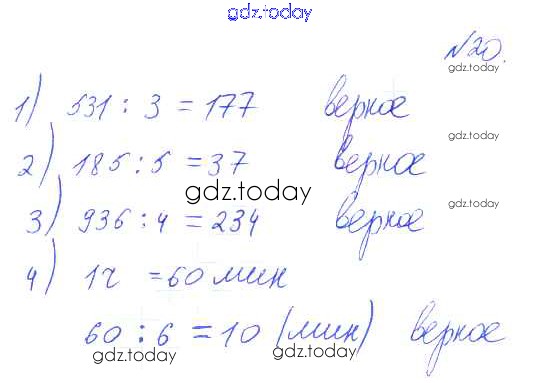 gdz.today
№20.
gdz.today
1) 531 : 3 = 177 верное
gdz.today
2) 185 : 5 = 37 верное
gdz.today
3) 936 : 4 = 234 верное
gdz.today
4) 1ч = 60 мин
60 : 6 = 10 (мин) верное
gdz.today gdz.today